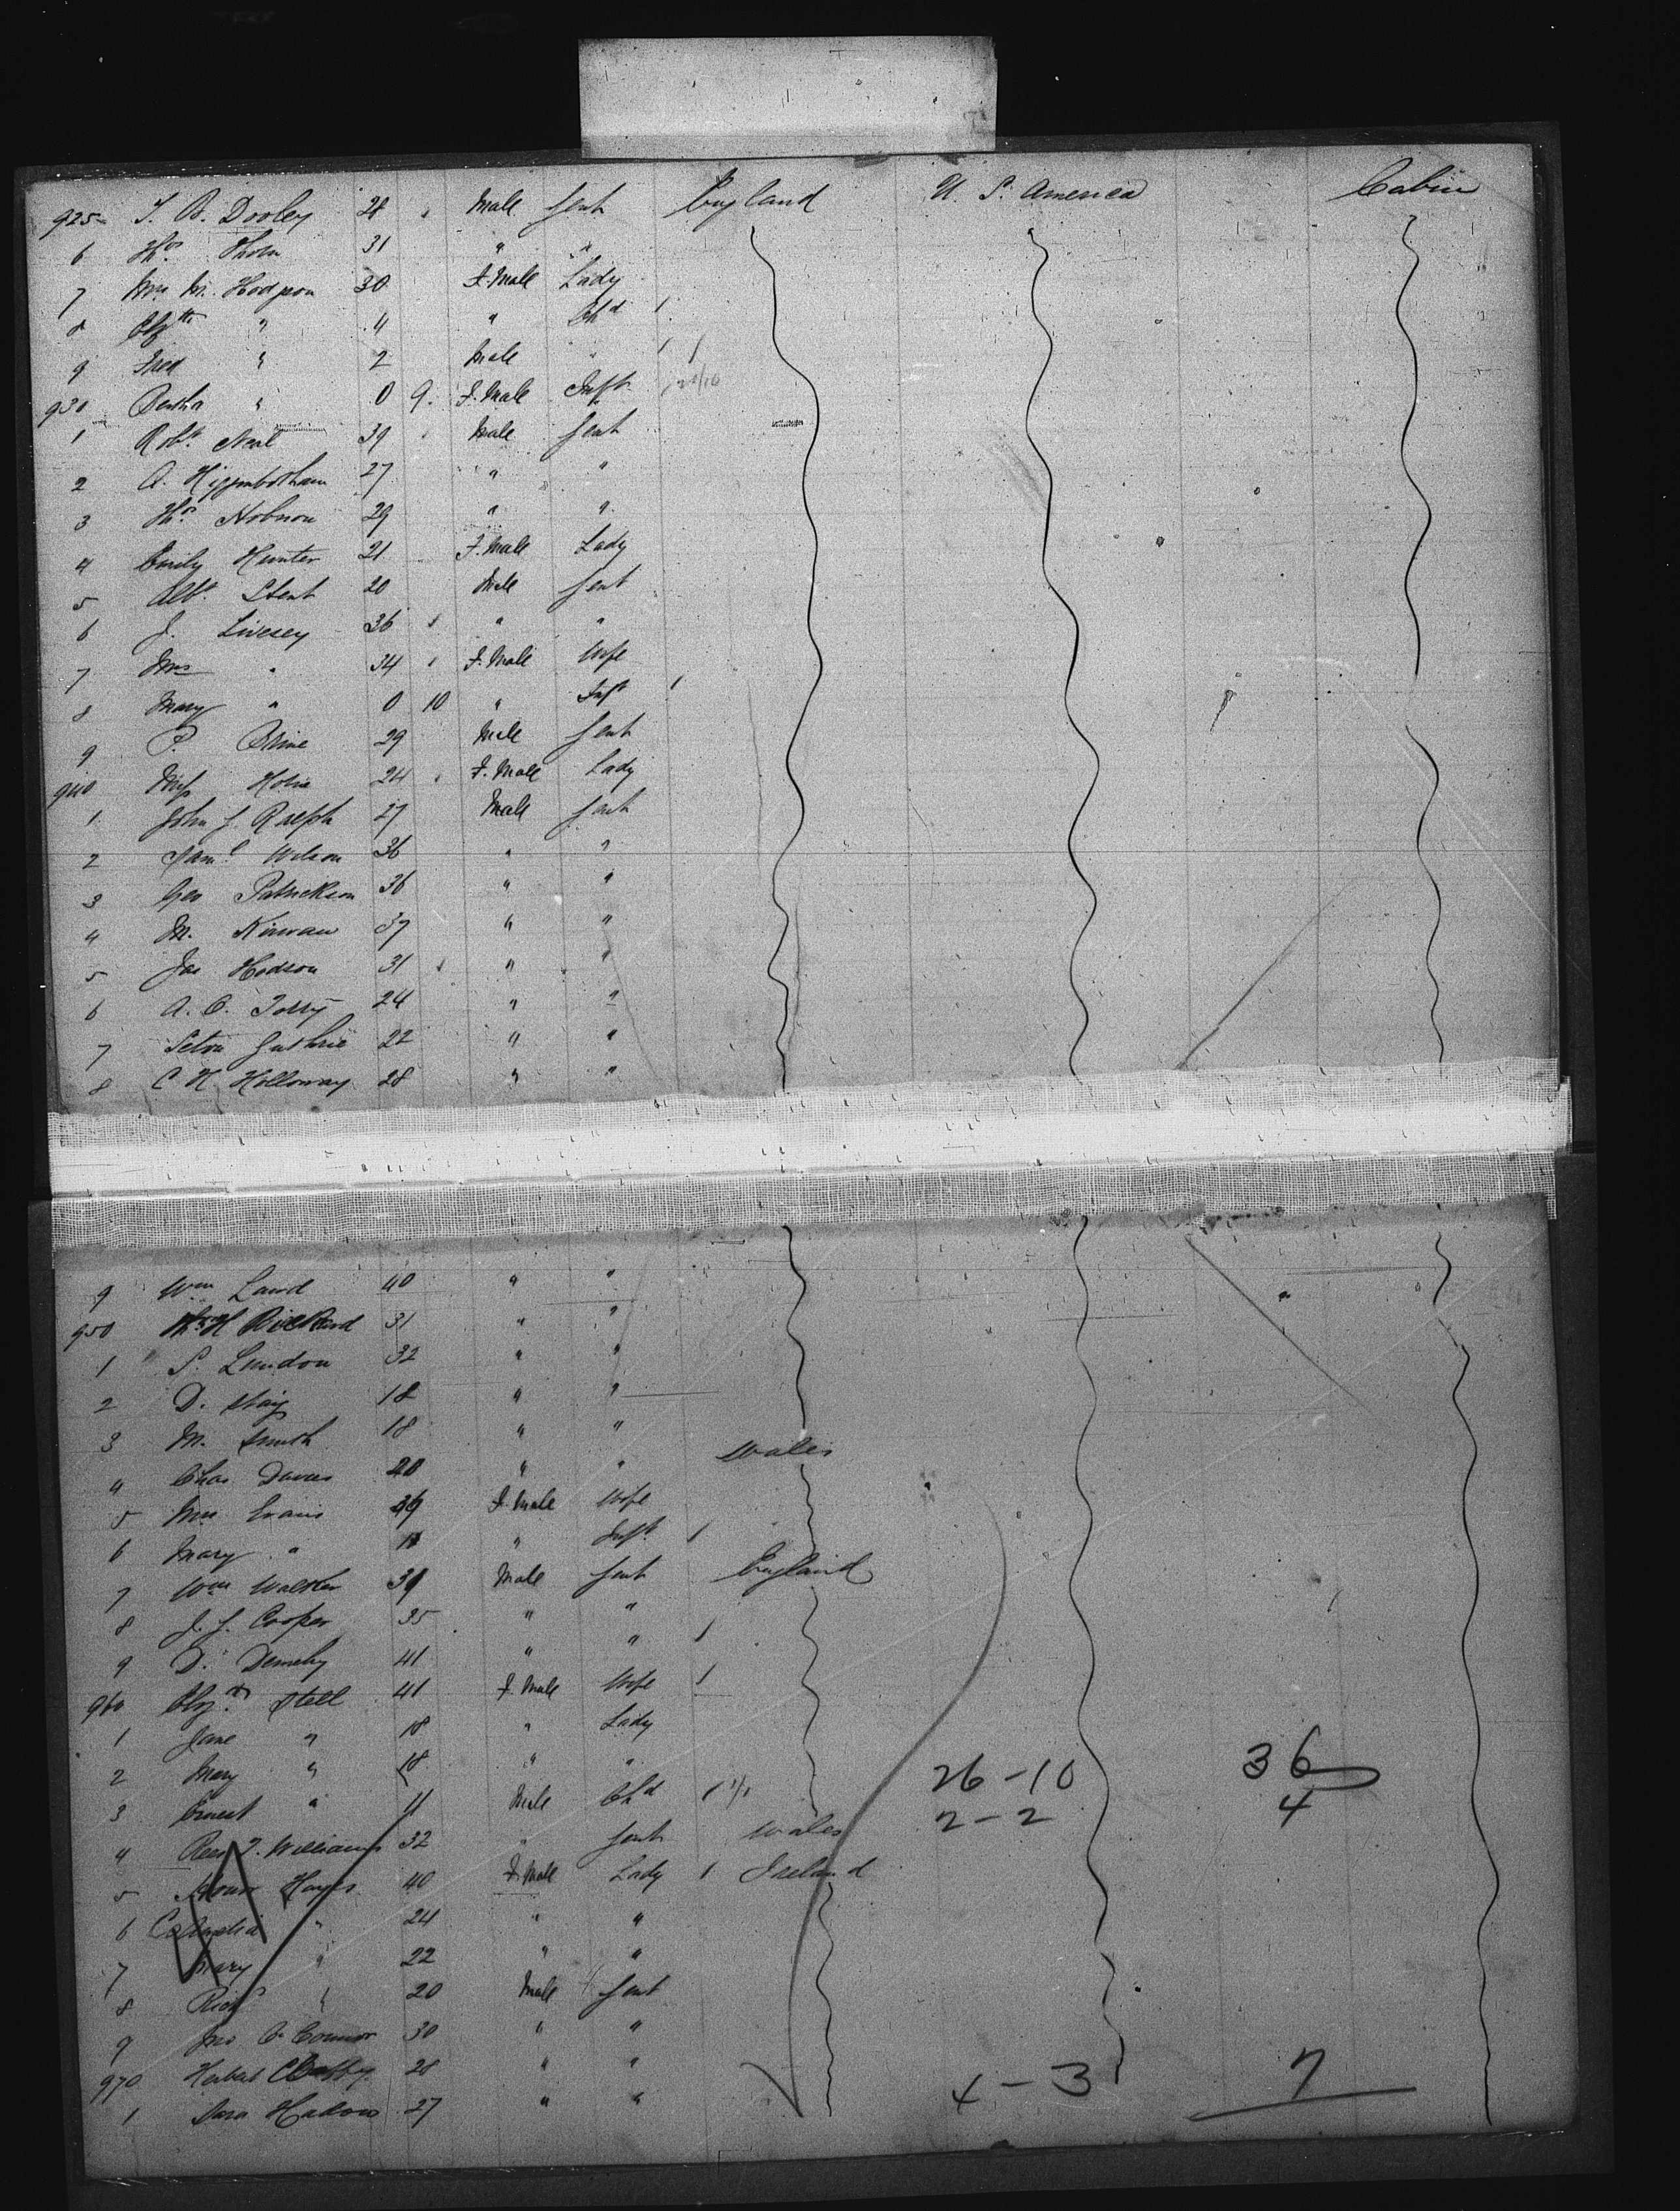 925 T. B. Dooley 28 " Male Gent England U. S. America Cabin
6 Thos Thom 31 " "
7 Mrs M. Hodgson 30 F. Male Lady
8 Elizth " 4 " Chd 1
9 Fred " 2 Male " 1 1
930 Bertha " 0 9. F. Male Inft 1
1 Robt Neal 39 Male Gent
2 A. Higginbotham 27 " "
3 Thos Hobson 29 " "
4 Emily Hunter 21 F. Male Lady
5 Albt Stent 20 Male Gent
6 J. Livesey 36 " "
7 Mrs " 34 F. Male Wife
8 Mary " 0 10 " Inft 1
9 P. Brine 29 Male Gent
940 Miss 24 F. Male Lady
1 John J. Ralph 27 Male Gent
2 Saml Wilson 36 " "
3 Geo Patrickson 36 " "
4 M. Kirwan 37 " "
5 Jas Hodson 31 " "
6 A. C. Torry 24 " "
7 Seton Guthrie 22 " "
8 C H Holloway 28 " "
9 Wm Land 40 " "
950 Thos H Rickard 31 " "
1 S. Lundon 32 " "
2 D. 18 " "
3 M. Smith 18 " "
4 Chas Davies 20 " " Wales
5 Mrs Evans 39 F. Male Wife
6 Mary " " Inft 1
7 Wm Walker 39 Male Gent England
8 J. J. Cooper 35 " "
9 D. 41 " " 1
960 Elizth Stell 41 F. Male Wife 1
1 Jane " 18 " Lady
2 Mary " 18 " " 26 - 10 36
3 Ernest " 11 Male Chd 1 1/1 2 - 2 4
4 Rees T. Williams 32 " Gent Wales
5 Honor Hayes 40 F. Male Lady 1 Ireland
6 " 24 " "
7 Mary " 22 " "
8 Richd " 20 Male Gent
9 Jno O'Connor 30 " "
970 Herbert 28 " " 4 - 3 7
1 27 " "